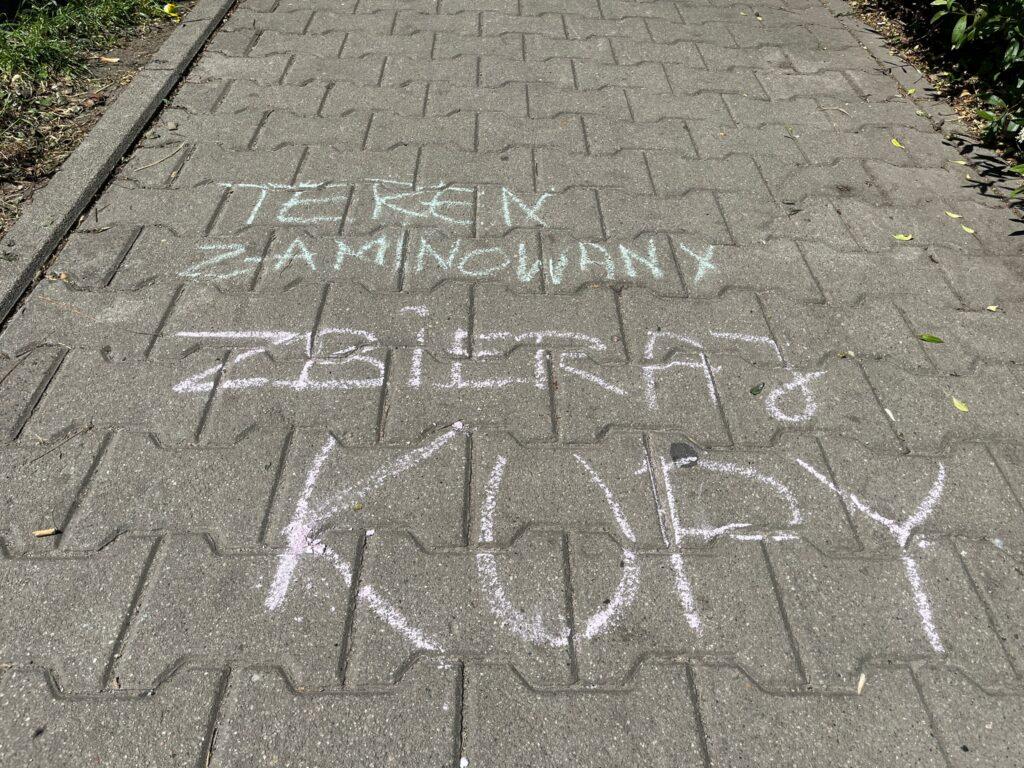 TEREN
ZAMINOWANY
ZBIERAJ
KUPY